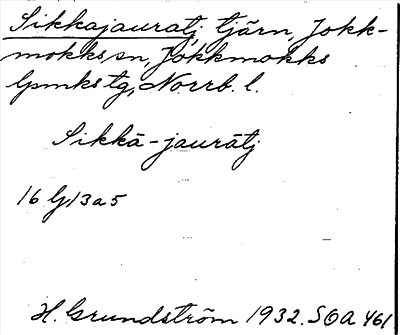 Sikkajauratj, tjärn, Jokk-
mokks sn, Jokkmokks
lpmks tg, Norrb. l.
Sikkā-jaurātj
16 G 13 a 5
H. Grundström 1932. SOA 461